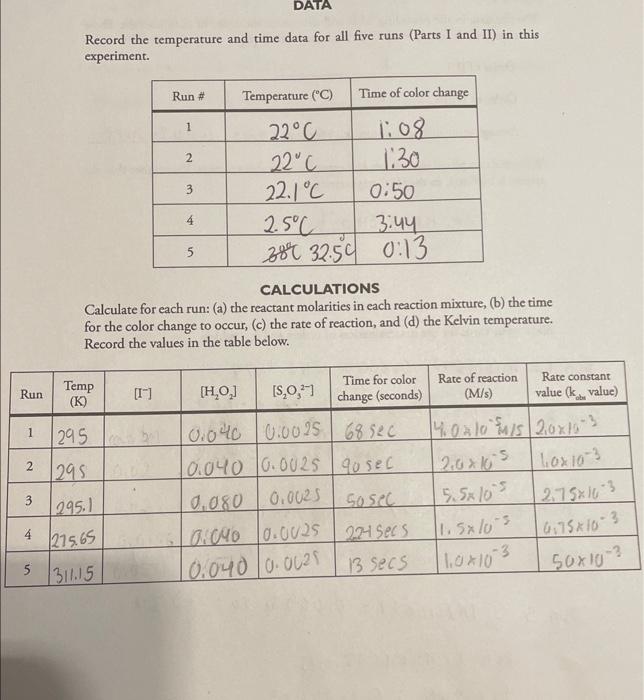 DATA
Record the temperature and time data for all five runs (Parts I and II) in this
experiment.
Run # Temperature (°C) Time of color change
1 22°C 1:08
2 22°C 1:30
3 22.1°C 0:50
4 2.5°C 3:44
5 32.5°C 0:13
CALCULATIONS
Calculate for each run: (a) the reactant molarities in each reaction mixture, (b) the time
for the color change to occur, (c) the rate of reaction, and (d) the Kelvin temperature.
Record the values in the table below.
Run Temp (K) [I⁻] [H₂O₂] [S₂O₃²⁻] Time for color change (seconds) Rate of reaction (M/s) Rate constant value (k_obs value)
1 295 0.040 0.0025 68 sec 4.0x10⁻⁵ M/S 2.0x10⁻³
2 295 0.040 0.0025 90 sec 2.0x10⁻⁵ 1.0x10⁻³
3 295.1 0.080 0.0025 50 sec 5.5x10⁻⁵ 2.75x10⁻³
4 275.65 0.040 0.0025 224 secs 1.5x10⁻⁵ 0.75x10⁻³
5 311.15 0.040 0.0025 13 secs 1.0x10⁻³ 50x10⁻³